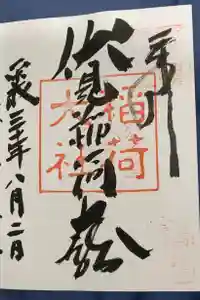 奉拝
伏見稲荷大社
稲荷
大社
平成三十年八月二日